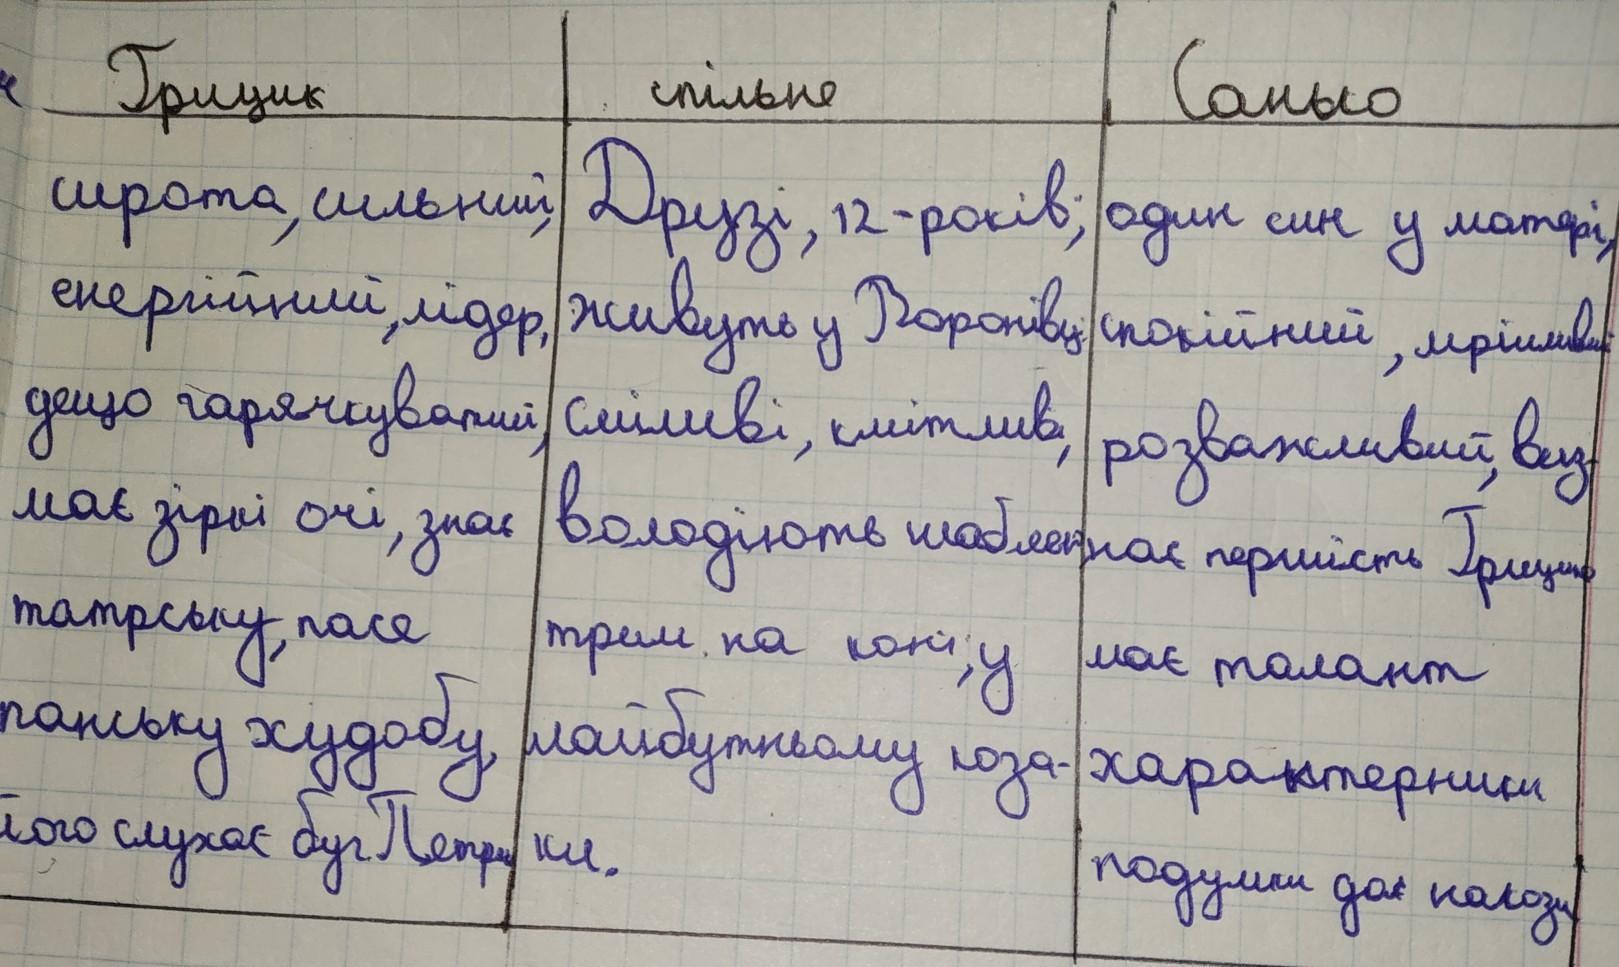 Грицик
спільне
Санько
сирота, сильний,
енергійний, лідер,
дещо гарячкуватий,
має зіркі очі, знає
татрську, пасе
панську худобу,
його слухає буг. Петри
Друзі, 12-років;
живуть у Воронівці
сміливі, кмітливі,
володіють шаблею,
трим. на коні; у
майбутньому коза-
ки.
один син у матері,
спокійний, мрійливий
розважливий, виз-
нає першість Грицика
має талант
характерника
подумки дає накази